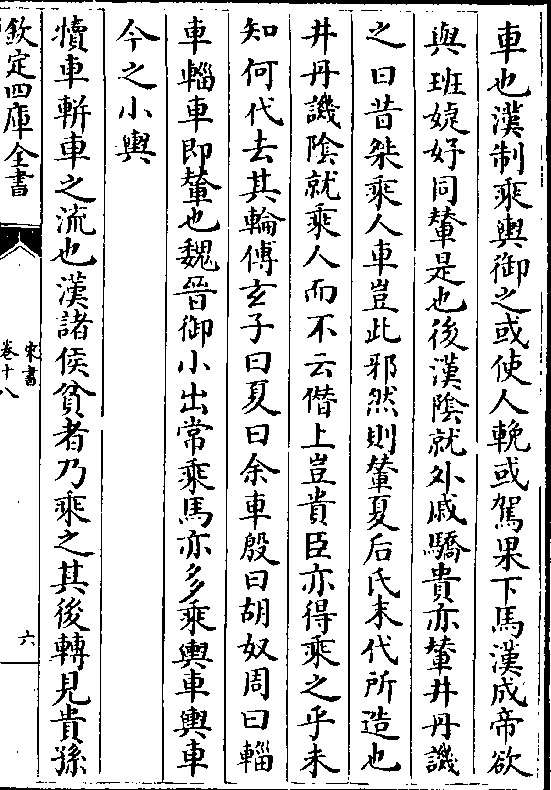 車也漢制乘輿御之或使人輓或駕果下馬漢成帝欲
與班婕妤同輦是也後漢陰就外戚驕貴亦輦井丹譏
之曰昔桀乘人車豈此邪然則輦夏后氏末代所造也
井丹譏陰就乘人而不云僭上豈貴臣亦得乘之乎未
知何代去其輪傅玄子曰夏曰余車殷曰胡奴周曰輜
車輜車即輦也魏晉御小出常乘馬亦多乘輿車輿車
今之小輿
犢車軿車之流也漢諸侯貧者乃乘之其後轉見貴孫
欽定四庫全書
宋書
卷十八
六